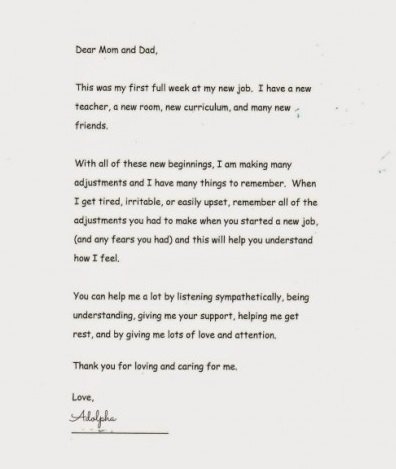 Dear Mom and Dad,
This was my first full week at my new job. I have a new
teacher, a new room, new curriculum, and many new
friends.
With all of these new beginnings, I am making many
adjustments and I have many things to remember. When
I get tired, irritable, or easily upset, remember all of the
adjustments you had to make when you started a new job,
(and any fears you had) and this will help you understand
how I feel.
You can help me a lot by listening sympathetically, being
understanding, giving me your support, helping me get
rest, and by giving me lots of love and attention.
Thank you for loving and caring for me.
Love,
Adolpha